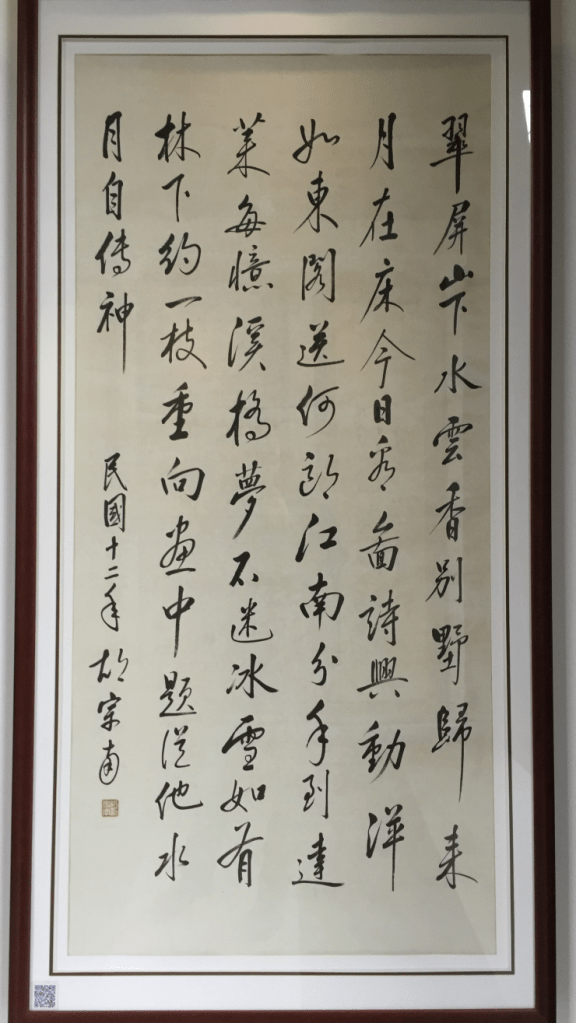 翠屏山下水雲香別墅歸来
月在床今日看啚詩興動渾
如東閣送何郎江南分手到蓬
萊每憶溪橋夢不迷冰雪如有
林下約一枝重向畫中題從他水
月自傳神
民國十二年胡宗南